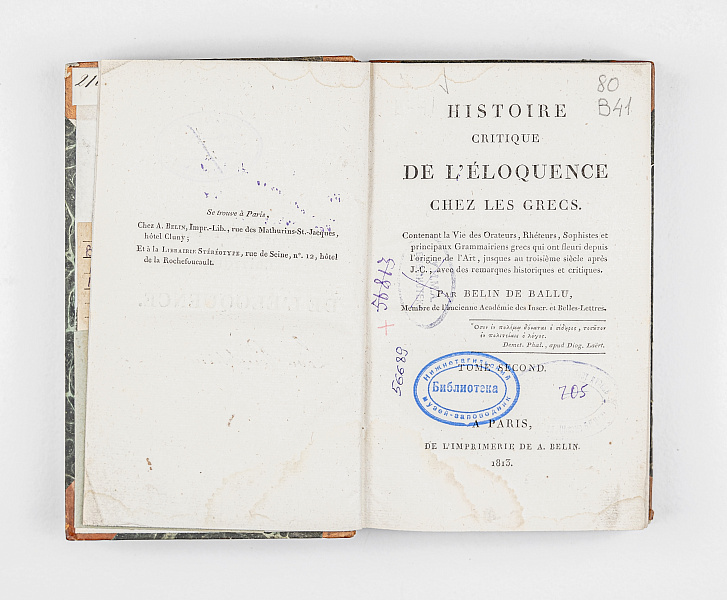 Se trouve à Paris,
Chez A. Belin, Impr.-Lib., rue des Mathurins-St.-Jacques,
hôtel Cluny;
Et à la Librairie Stéréotype, rue de Seine, n°. 12, hôtel
de la Rochefoucault.
80
B41
HISTOIRE
CRITIQUE
DE L'ÉLOQUENCE
CHEZ LES GRECS.
Contenant la Vie des Orateurs, Rhéteurs, Sophistes et
principaux Grammairiens grecs qui ont fleuri depuis
l'origine de l'Art, jusques au troisième siècle après
J.-C., avec des remarques historiques et critiques.
Par BELIN DE BALLU,
Membre de l'ancienne Académie des Inscr. et Belles-Lettres.
Demet. Phal., apud Diog. Laërt.
TOME SECOND.
56813
56689
Нижнетагильский
Библиотека
музей-заповедник
705
A PARIS,
DE L'IMPRIMERIE DE A. BELIN.
1813.